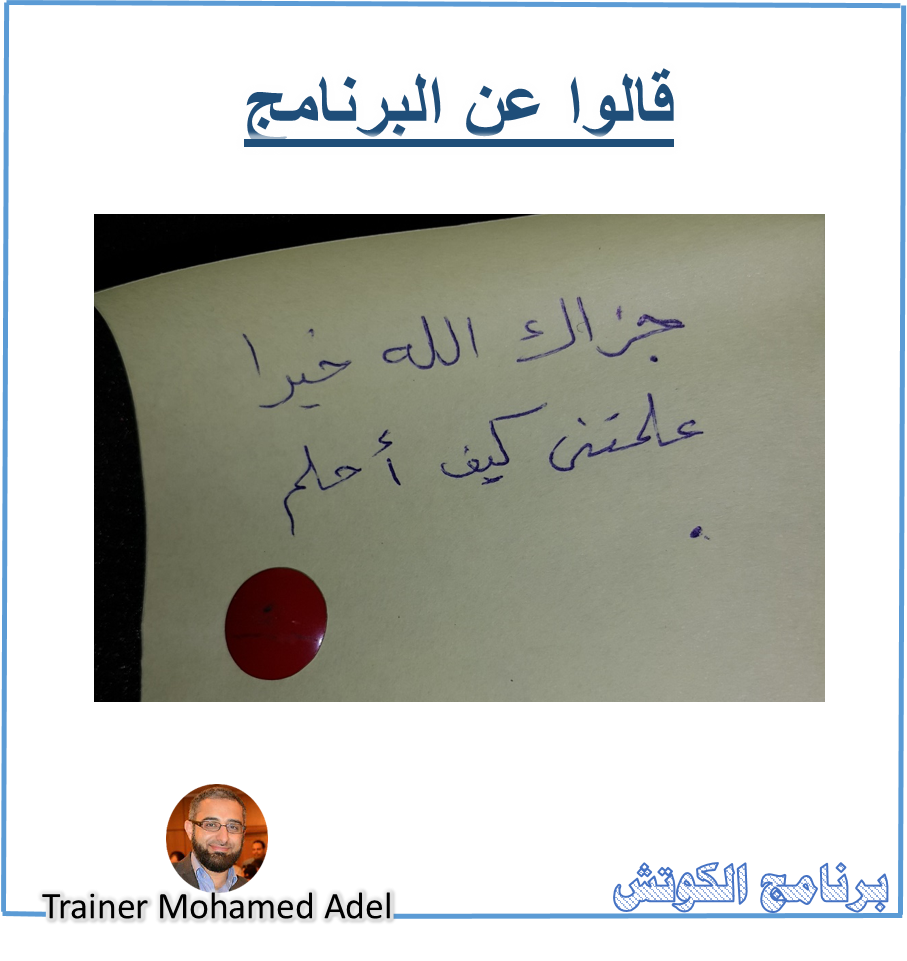 قالوا عن البرنامج
جزاك الله خيرا
علمتنى كيف أحلم
.
Trainer Mohamed Adel
برنامج الكوتش